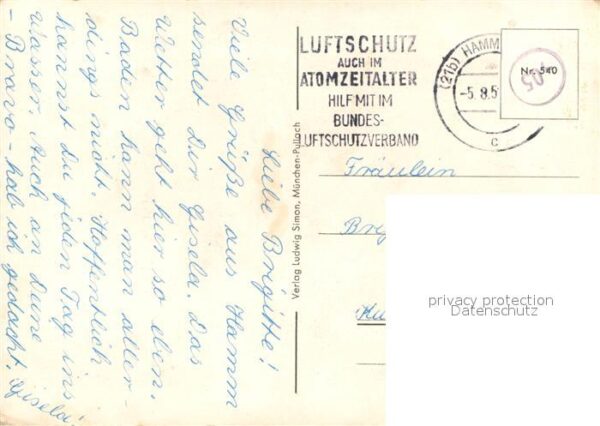 Liebe Brigitte!
Viele Grüße aus Hamm
sendet Dir Gisela. Das
Wetter geht hier so eben.
Baden kann man aller-
dings nicht. Hoffentlich
kannst Du jeden Tag ins
Wasser. Auch an Dune
- Bravo - hab ich gedacht. Gisela!
Verlag Ludwig Simon, München-Pullach
LUFTSCHUTZ
AUCH IM
ATOMZEITALTER
HILF MIT IM
BUNDES-
LUFTSCHUTZVERBAND
(21b) HAMM
-5.8.5
c
Nr. 540
Fräulein
privacy protection
Datenschutz